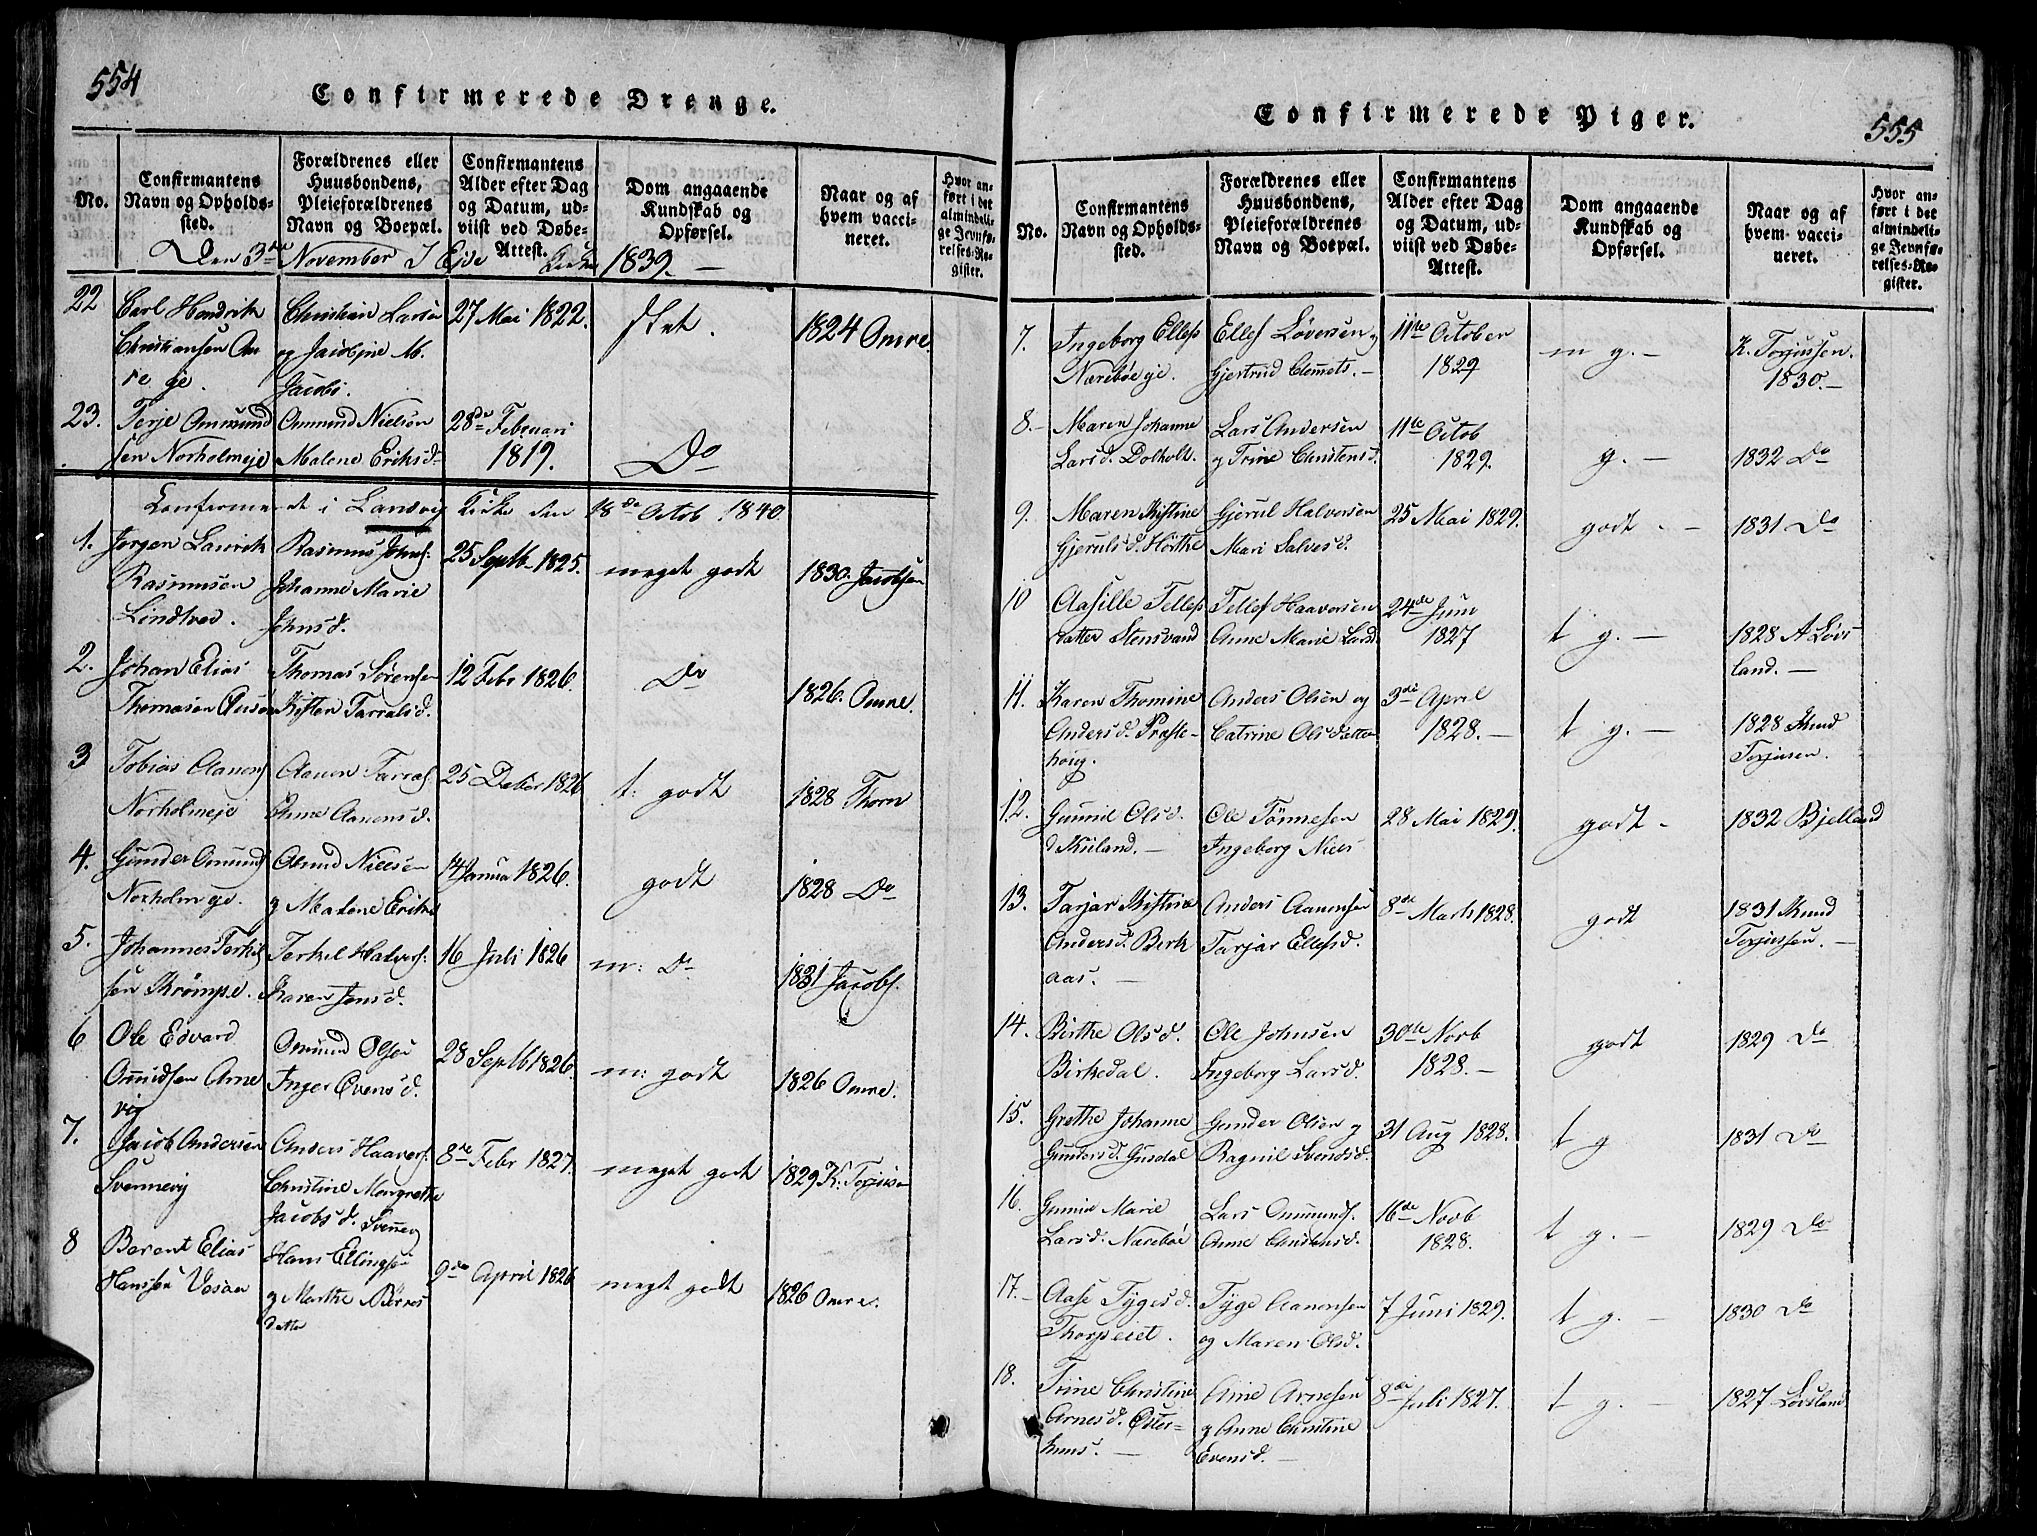 554
Confirmerede Drenge.
No.
Confirmantens
Navn og Opholds-
sted.
Forældrenes eller
Huusbondens,
Pleieforældrenes
Navn og Boepæl.
Confirmantens
Alder efter Dag
og Datum, ud-
viist ved Døbe-
Attest.
Dom angaaende
Kundskab og
Opførsel.
Naar og af
hvem vacci-
neret.
Hvor an-
ført i det
almindeli-
ge Jevnfø-
relses-Re-
gister.
Den 3de November I Eide Kirke 1839. —
22
Carl Hendrik
Christiansen Om
re eje.
Christian Larsen
og Jacobine M.
Jacobs.
27 Mai 1822.
slet.
1824 Omre.
23.
Terje Ommund
sen Norholmeje
Ommund Nielsen
Malene Eriksd
28de Februari
1819.
Do
Confirmeret i Landvig Kirke den 18de Octob 1840
1.
Jørgen Laurik
Rasmusen
Lindtved.
Rasmus Johns:
Johanne Marie
Johnsd.
25 Septb 1825.
meget godt
1830. Jacobsen
2.
Johan Elias
Thomasen
Thomas Sørensen
Kisten Tarralsd.
12 Febr 1826.
Do
1826. Omre.
3
Tobias Aanens
Norholmeje
Aanen Tarras.
Anne Aanensd.
25 Debr 1826
t: godt
1828 Thorn
4.
Gunder Omunds
Norholm eje.
Omund Nielsen
g Malene Eriks
14 Janua 1826.
godt
1828 Do
5.
Johannes Terkil
sen Krømpe.
Terkel Halvers:
Karen Jensd.
16 Juli 1826
m: Do
1831 Jacobs.
6
Ole Edvard
Omundsen Arne
vig
Omund Olsen
Inger Evensd.
28 Septb 1826.
m: godt
1826 Omre.
7.
Jacob Andersen
Svennevig
Anders Haavers:
Christine Mangrethe
Jacobsd. Svennevg
8de Febr 1827.
meget godt
1829 K: Torjusen
8
Berent Elias
Hanssen Vesøen
Hans Ellingsen
g Marthe Børres
datter
9de April 1826
megt godt
1826 Omre.
Confirmerede Piger.
555
No.
Confirmantens
Navn og Opholds-
sted.
Forældrenes eller
Huusbondens,
Pleieforældrenes
Navn og Boepæl.
Confirmantens
Alder efter Dag
og Datum, ud-
viist ved Døbe-
Attest.
Dom angaaende
Kundskab og
Opførsel.
Naar og af
hvem vacci-
neret.
Hvor an-
ført i det
almindeli-
ge Jevnfø-
relses-Re-
gister.
7.
Ingeborg Ellefs
Nærebøe eje.
Ellef Løversen g
Gjertrud Clemets. —
11te October
1829
m g. —
K. Torjussen.
1830. —
8. —
Maren Johanne
Larsd. Dolholt.
Lars Andersen
g Trine Christensd.
11te Octob
1829.
g. —
1832 Do
9.
Maren Kistine
Gjerulsd. Hørthe
Gjerul Halversen
Mari Salvesd.
25 Mai 1829.
godt. —
1831 Do
10
Aasille Tellefs
datter Stensvand
Tellef Haaversen
Anne Marie Larsd
24de Juni
1827
t g. —
1828 A Løvs
land. —
11.
Karen Thomine
Andersd. Præste-
houg.
Anders Olsen og
Catrine Olsdatter
3die April
1828. —
t g. —
1828 Knud
Torjusen.
12.
Gunnil Olsd.
Kuland. —
Ole Tønnesen
Ingeborg Niels
28 Mai 1829.
godt —
1832 Bjelland
13.
Tarjar Kistine
Andersd. Berk
aas. —
Anders Aanonsen
Tarjar Ellefsd.
8de Marts 1828.
godt
1831 Knud
Torjussen. —
14.
Birthe Olsd.
Birkedal.
Ole Johnsen
Ingeborg Larsd.
30de Novb
1828. —
godt
1829 Do
15.
Grethe Johanne
Gundersd. Gusdal
Gunder Olsen g
Ragnil Svendsd.
31 Aug 1828.
t g
1831 Do
16.
Gunnil Marie
Larsd. Nærebøe
Lars Ommunds.
Anne Christensd.
16de Novb
1828.
t g. —
1829 Do
17. —
Aase Tygesd.
Thorpeiet.
Tyge Aanonsen
og Maren Olsd.
7 Juni 1829.
t g. —
1830 Do
18.
Trine Christine
Arnesd. Øster-
huus. —
Arne Arnesen
g Anne Christine
Evensd. —
8de Juli 1827.
t g. —
1827 Løvsland